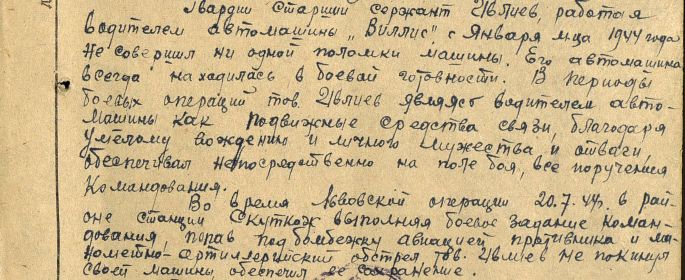 Гвардии старши сержант Ивлиев, работая
водителем автомашины „Виллис" с Января м-ца 1944 года
не совершил ни одной поломки машины. Его автомашина
всегда находилась в боевой готовности. В периоды
боевых операций тов. Ивлиев являясь водителем авто-
машины как подвижные средства связи, благодаря
умелому вождению и личного мужества и отваги,
обеспечивал непосредственно на поле боя, все поручения
Командования.
Во время Львовской операции 20.7.44г. в рай-
оне станции Скуткож выполняя боевое задание коман-
дования, попав под бомбежку авиацией противника и ми-
нометно-артиллерийский обстрел тов. Ивлиев не покинул
своей машины, обеспечил её сохранение.